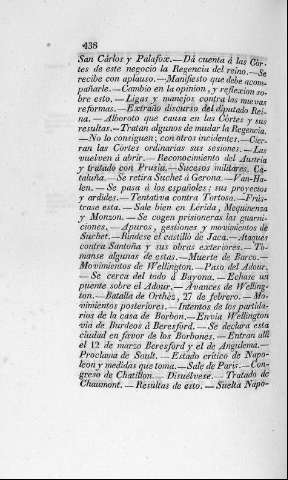 438
San Cárlos y Palafox.—Dá cuenta á las Cór-
tes de este negocio la Regencia del reino.—Se
recibe con aplauso.—Manifiesto que debe acom-
pañarle.—Cambio en la opinion, y reflexion so-
bre esto.—Ligas y manejos contra las nuevas
reformas.—Extraño discurso del diputado Rei-
na.—Alboroto que causa en las Córtes y sus
resultas.—Tratan algunos de mudar la Regencia.
—No lo consiguen; con otros incidentes.—Cier-
ran las Cortes ordinarias sus sesiones.—Las
vuelven á abrir.—Reconocimiento del Austria
y tratado con Prusia.—Sucesos militares. Ca-
taluña.—Se retira Suchet á Gerona.—Van-Ha-
len.—Se pasa á los españoles; sus proyectos
y ardides.—Tentativa contra Tortosa.—Frús-
trase esta.—Sale bien en Lérida, Mequinenza
y Monzon.—Se cogen prisioneras las guarni-
ciones.—Apuros, gestiones y movimientos de
Suchet.—Ríndese el castillo de Jaca.—Ataques
contra Santoña y sus obras exteriores.—Tó-
manse algunas de estas.—Muerte de Barco.—
Movimientos de Wellington.—Paso del Adour.
—Se cerca del todo á Bayona.—Echase un
puente sobre el Adour.—Avances de Welling-
ton.—Batalla de Orthèz, 27 de febrero.—Mo-
vimientos posteriores.—Intentos de los partida-
rios de la casa de Borbon.—Envia Wellington
via de Burdeos á Beresford.—Se declara esta
ciudad en favor de los Borbones.—Entran allí
el 12 de marzo Beresford y el de Angulema.—
Proclama de Soult.—Estado crítico de Napo-
leon y medidas que toma.—Sale de Paris.—Con-
greso de Chatillon.—Disuélvese.—Tratado de
Chaumont.—Resultas de esto.—Suelta Napo-